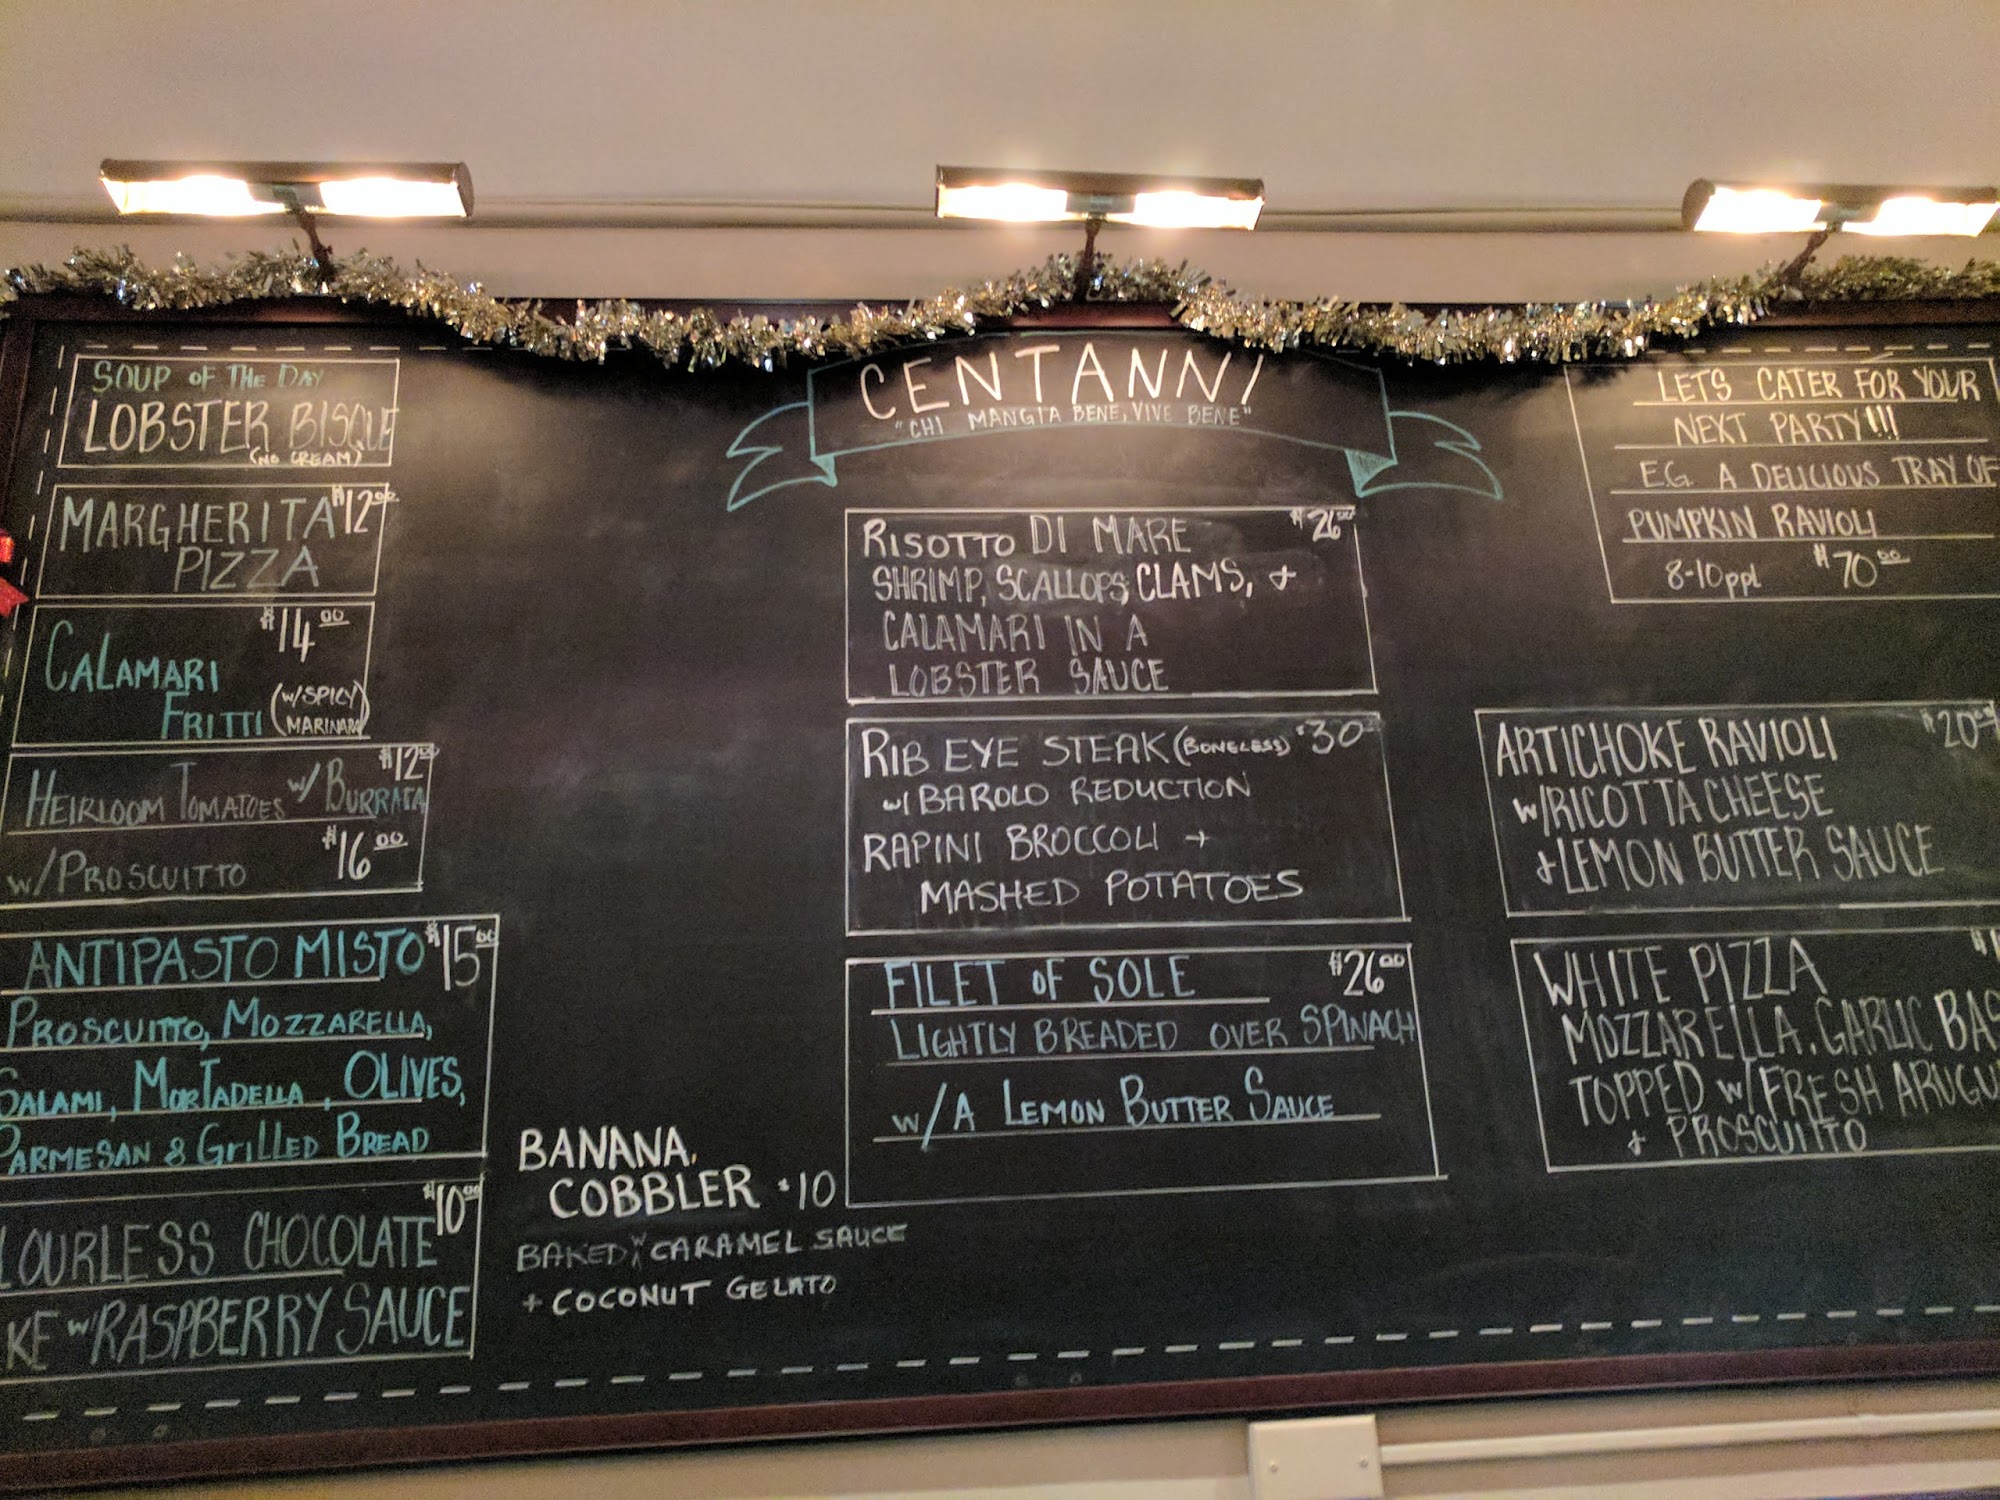 SOUP OF THE DAY
LOBSTER BISQUE
(NO CREAM)
MARGHERITA $12.00
PIZZA
$14.00
CALAMARI
FRITTI (W/SPICY
MARINARA)
$12.00
HEIRLOOM TOMATOES W/ BURRATA
W/PROSCUITTO $16.00
ANTIPASTO MISTO $15.00
PROSCUITTO, MOZZARELLA,
SALAMI, MORTADELLA, OLIVES,
PARMESAN & GRILLED BREAD
LOURLESS CHOCOLATE $10.00
KE W/ RASPBERRY SAUCE
BANANA
COBBLER $10
BAKED W/ CARAMEL SAUCE
+ COCONUT GELATO
CENTANNI
"CHI MANGIA BENE, VIVE BENE"
RISOTTO DI MARE $26.00
SHRIMP, SCALLOPS, CLAMS, +
CALAMARI IN A
LOBSTER SAUCE
RIB EYE STEAK (BONELESS) $30
W/ BAROLO REDUCTION
RAPINI BROCCOLI +
MASHED POTATOES
FILET OF SOLE $26.00
LIGHTLY BREADED OVER SPINACH
W/A LEMON BUTTER SAUCE
LETS CATER FOR YOUR
NEXT PARTY!!!
E.G. A DELICIOUS TRAY OF
PUMPKIN RAVIOLI
8-10ppl $70.00
ARTICHOKE RAVIOLI $20.00
W/RICOTTA CHEESE
+ LEMON BUTTER SAUCE
WHITE PIZZA
MOZZARELLA, GARLIC BAS
TOPPED W/FRESH ARUGU
+ PROSCUITTO